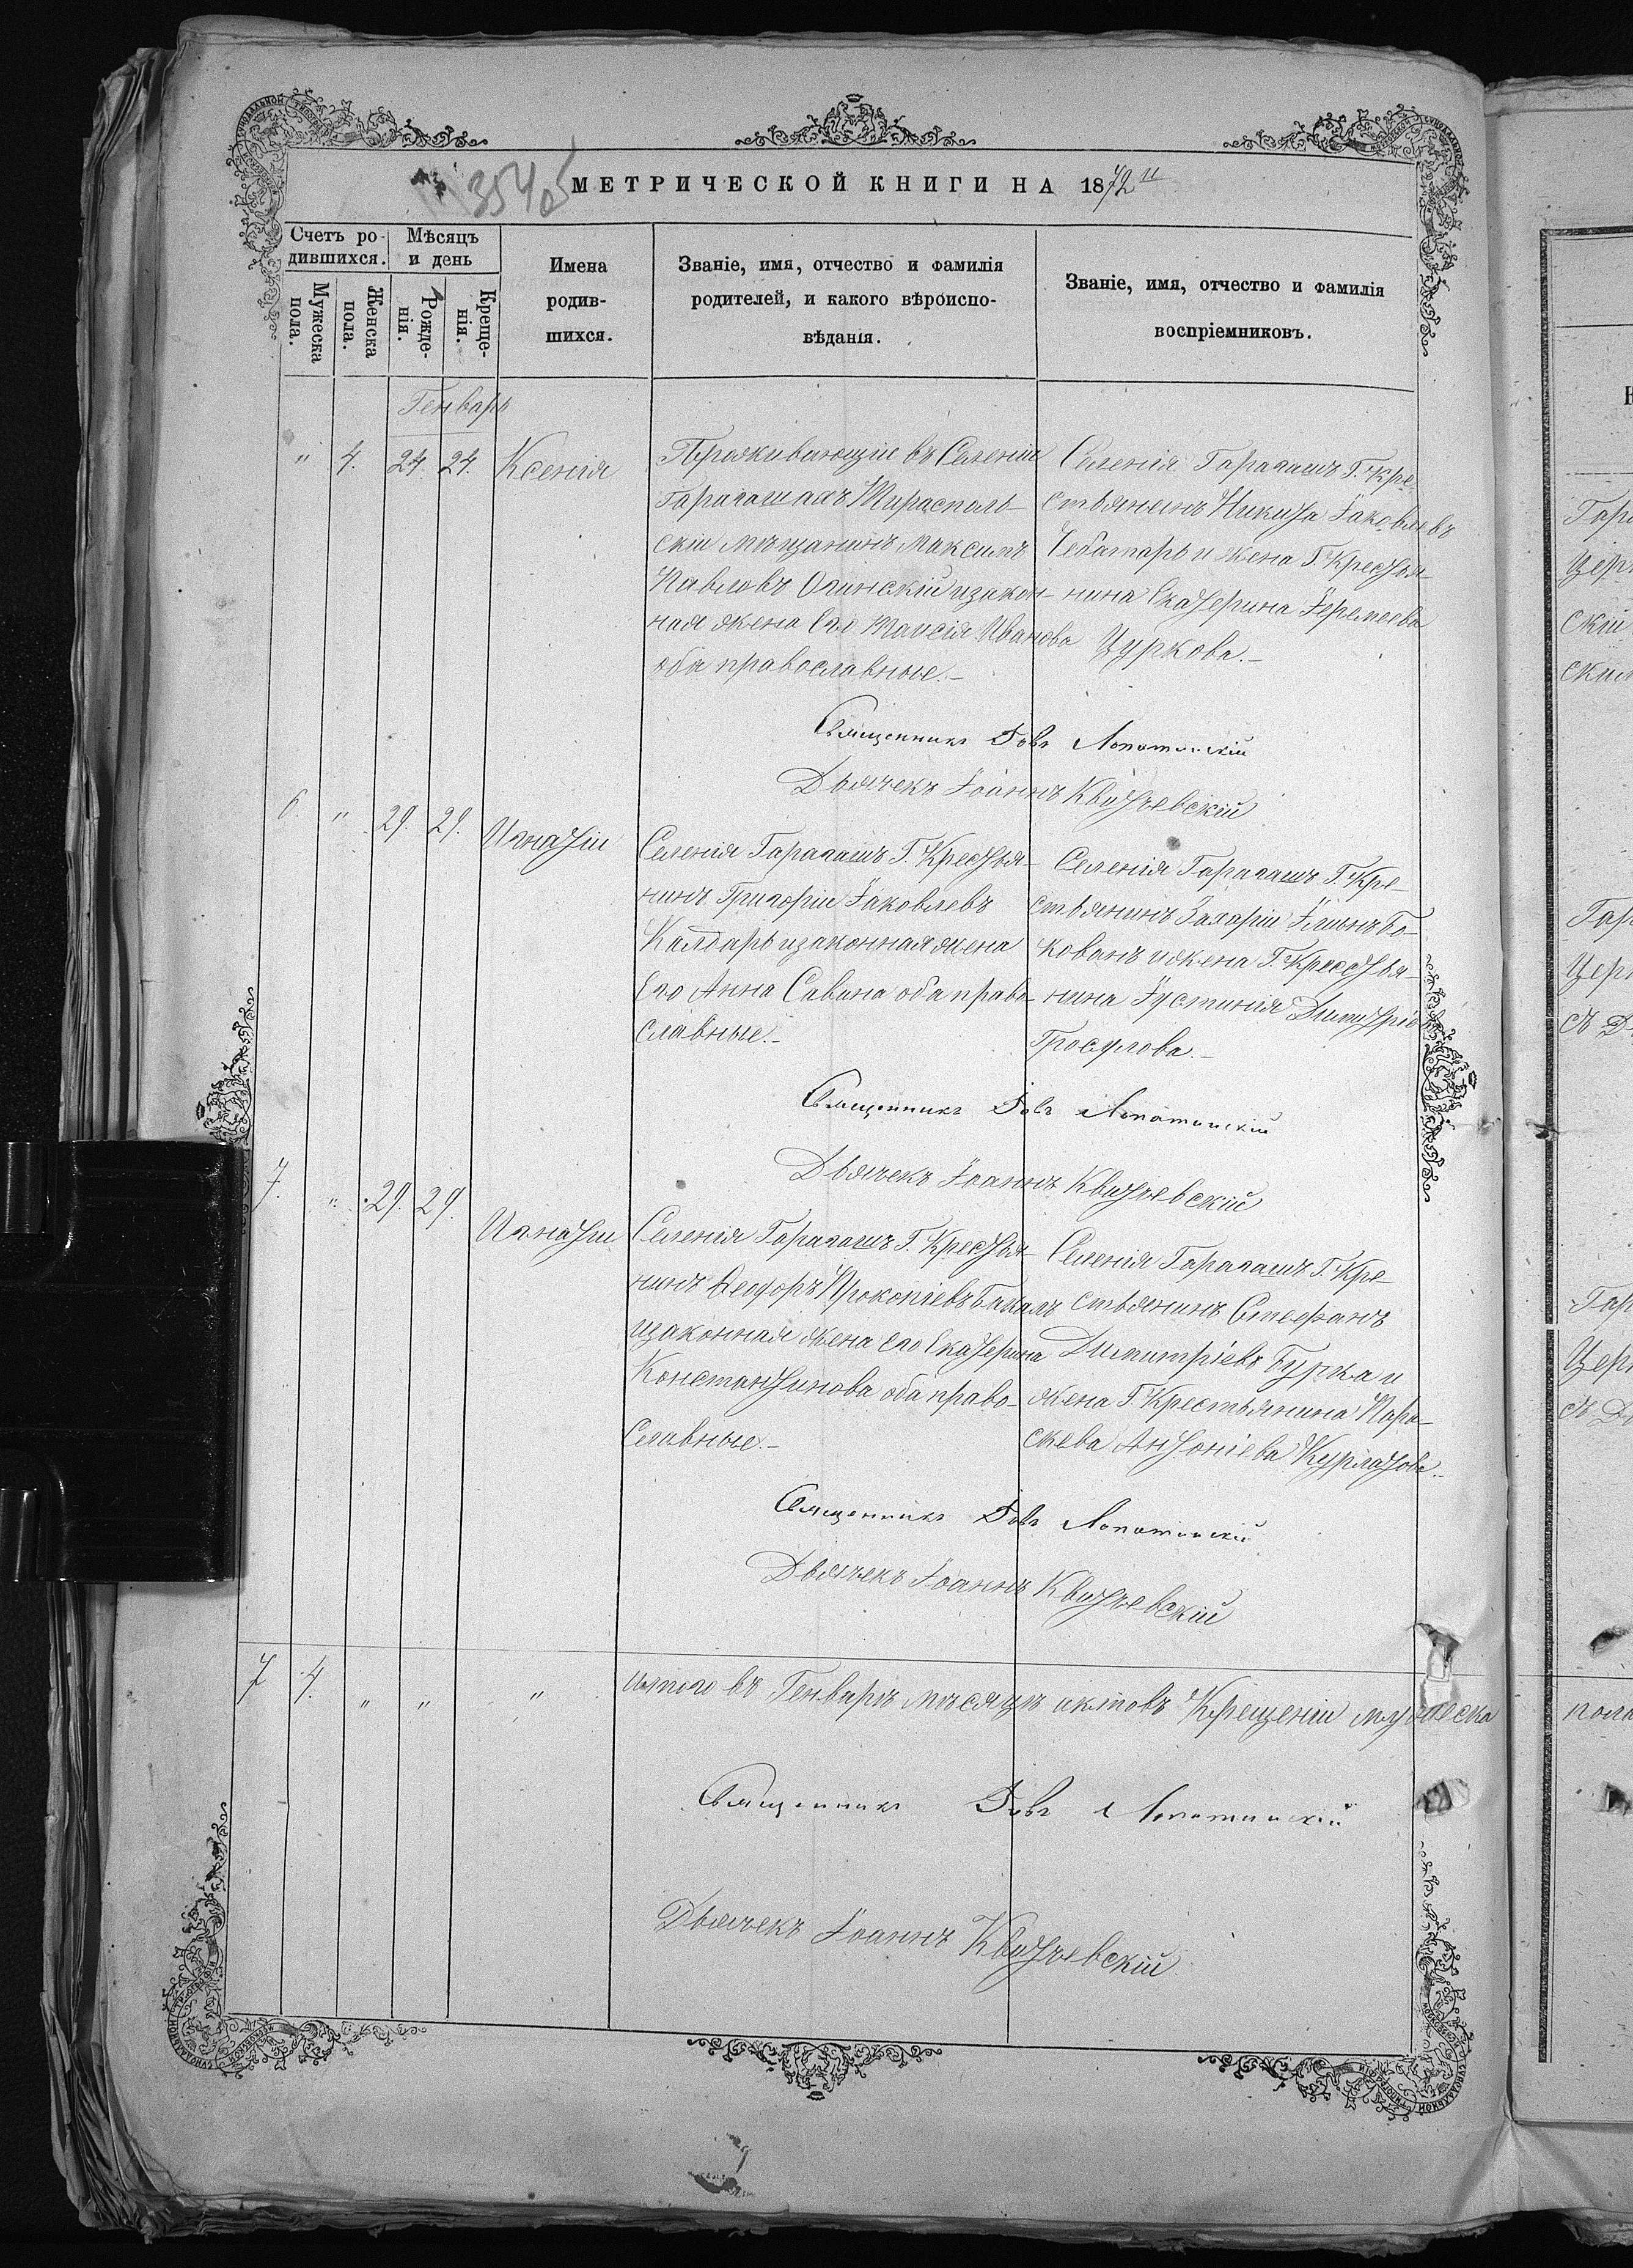 35405
МЕТРИЧЕСКОЙ КНИГИ НА 1872й
Счетъ ро-
дившихся.
Мѣсяцъ
и день
Мужеска
пола.
Женска
пола.
Рожде-
нія.
Креще-
нія.
Имена
родив-
шихся.
Званіе, имя, отчество и фамилія
родителей, и какого вѣроиспо-
вѣданія.
Званіе, имя, отчество и фамилія
воспріемниковъ.
Генварь
" 4. 24. 24. Ксенія
Проживающіи въ Селеніи
Гарагашахъ Тирасполь-
скіи мѣщанинъ Максимъ
Павловъ Огинскій изакон-
ная жена Его Таисія Иванова
оба православные.-
Селенія Гарагашъ Г. Кре-
стьянинъ Никита Іаковлевъ
Чебатарь и жена Г. Крестья-
нина Екатерина Іеремеева
Цуркова.-
Священникъ Іовъ Лопатинскій
Дьячекъ Іоаннъ Квитчевскій
6. " 29. 29. Игнатіи
Селенія Гарагашъ Г. Крестья-
нинъ Григоріи Іаковлевъ
Калдарь изаконная жена
Его Анна Савина оба право-
славные.-
Селенія Гарагашъ Г. Кре-
стьянинъ Захаріи Іліинъ Бо-
кованъ ижена Г. Крестья-
нина Іустинія Димитріова
Гросулова.-
Священникъ Іовъ Лопатинскій
Дьячекъ Іоаннъ Квитчевскій
7. " 29. 29. Игнатіи
Селенія Гарагашъ Г. Крестья-
нинъ Ѳеодоръ Прокопіевъ Бакалъ
изаконная жена его Екатерина
Константинова оба право-
славные.-
Селенія Гарагашъ Г. Кре-
стьянинъ Стефанъ
Димитріевъ Бурка и
жена Г. Крестьянина Пара-
скева Антоніева Курлатова.-
Священникъ Іовъ Лопатинскій
Дьячекъ Іоаннъ Квитчевскій
7 4. " " " Итого въ Генварѣ мѣсяцѣ актовъ Крещеніи мужеска
Священникъ Іовъ Лопатинскій
Дьячекъ Іоаннъ Квитчевскій